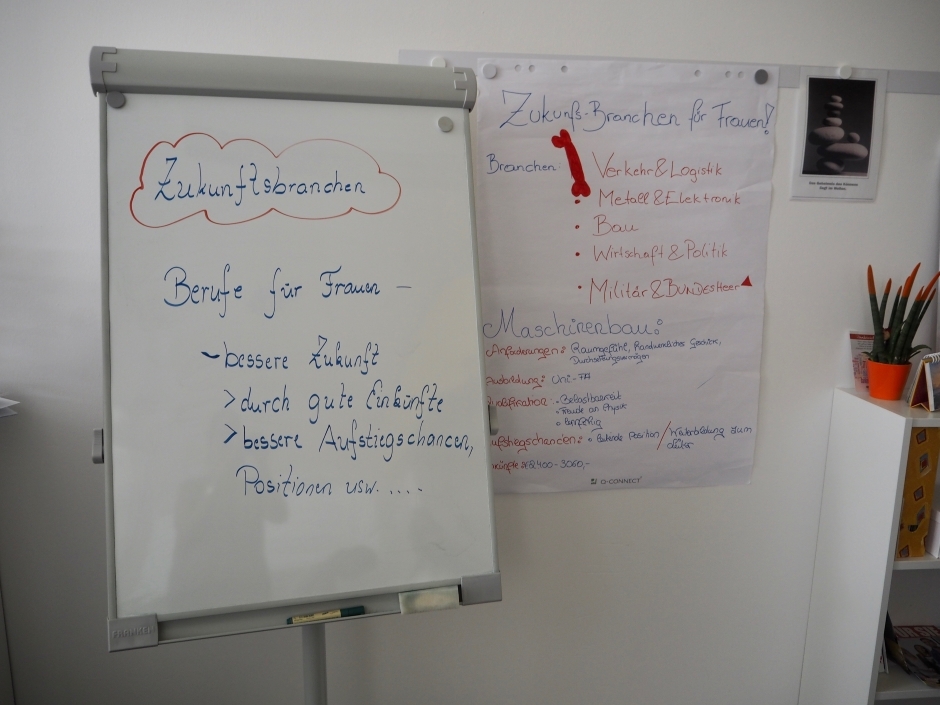 Zukunftsbranchen
Berufe für Frauen –
- bessere Zukunft
> durch gute Einkünfte
> bessere Aufstiegschancen,
Positionen usw. .....
FRANKEN
Zukunfs-Branchen für Frauen!
Branchen:
Verkehr & Logistik
• Metall & Elektronik
• Bau
• Wirtschaft & Politik
• Militär & BUNDESHeer
Maschinenbau:
Anforderungen: Raumgefühl, Geschick,
Durchsetzungsvermögen
usbildung: Uni-
• Belastbarkeit
• Freude an Physik
ufstiegschancen: • Position / Weiterbildung zum
2400 - 3060,-
Q-CONNECT